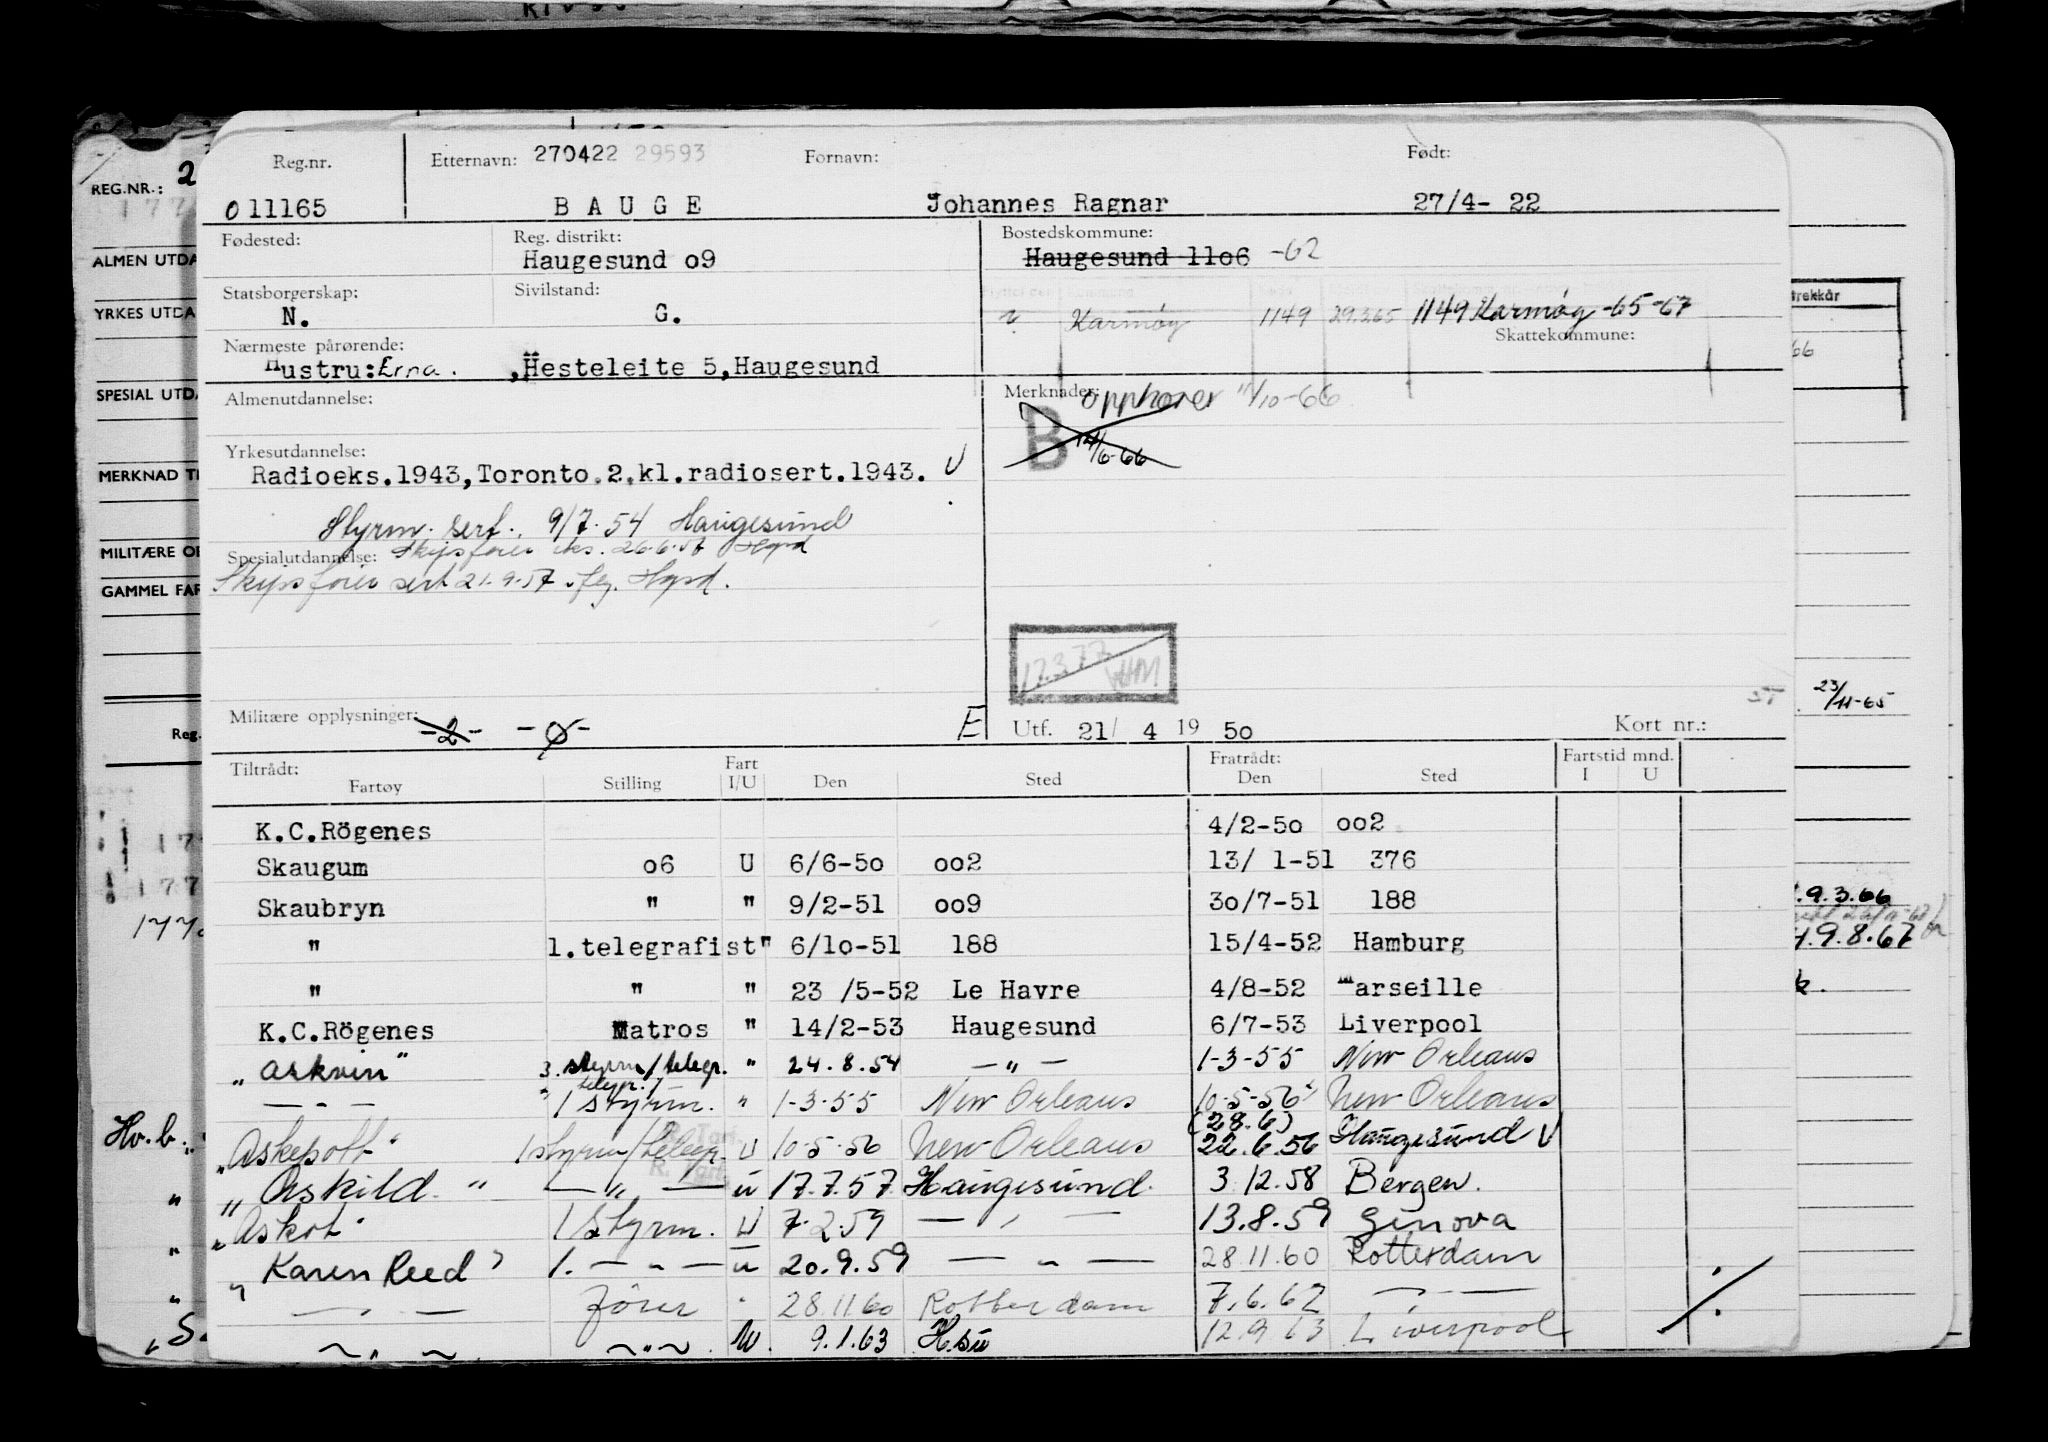 REG.NR.: 2
ALMEN UTDA
YRKES UTDA
SPESIAL UTDA
MERKNAD T
MILITÆRE O
GAMMEL FAR
Reg.
Reg.nr. Etternavn: 270422 29593 Fornavn: Født:
011165 BAUGE Johannes Ragnar 27/4- 22
Fødested: Reg. distrikt: Bostedskommune:
Haugesund o9 Haugesund 11o6 -62
Statsborgerskap: Sivilstand:
N. G. Karmøy 1149 29.3.65 1149 Karmøy -65-67
Nærmeste pårørende: Skattekommune:
Hustru: Erna. ,Hesteleite 5,Haugesund
Almenutdannelse: Merknader: opphører 11/10-66
B 14/6-66
Yrkesutdannelse:
Radioeks.1943,Toronto.2.kl.radiosert.1943. U
Styrm. sert. 9/7.54 Haugesund
Spesialutdannelse: Skipsfører eks. Hgsd
Skipsfører sert 21.9.57. Hgsd.
17.3.77
Militære opplysninger: -2- -0- E Utf. 21/ 4 19 50 Kort nr.:
Tiltrådt: Fart Fratrådt: Fartstid mnd.
Fartøy Stilling I/U Den Sted Den Sted I U
K.C.Rögenes 4/2-5o oo2
Skaugum o6 U 6/6-5o oo2 13/ 1-51 376
Skaubryn " " 9/2-51 oo9 3o/7-51 188
" 1.telegrafist " 6/1o-51 188 15/4-52 Hamburg
" " " 23 /5-52 Le Havre 4/8-52 Marseille
K.C.Rögenes Matros " 14/2-53 Haugesund 6/7-53 Liverpool
"Askvin" 3. styrm/telegr. " 24.8.54 — " — 1-3-55 New Orleans
— " — telegr./ 1 styrm. " 1-3-55 New Orleans 10-5-56 New Orleans
(28.6)
Hv.b. "Askepott" 1 styrm/telegr. U 10-5-56 New Orleans 22.6.56 Haugesund U
" "Askild" — " — u 17.7.57 Haugesund. 3.12.58 Bergen.
" "Askot" 1 styrm. U 7.2.59 — " — 13.8.59 Genova
" "Karen Reed" 1. — " — u 20.9.59 — " — 28.11.60 Rotterdam
— " — fører " 28.11.60 Rotterdam 7.6.62 — " —
— " — — " — U. 9.1.63 H.su 12.9.63 Liverpool
23/11-65
9.3.66
9.8.67